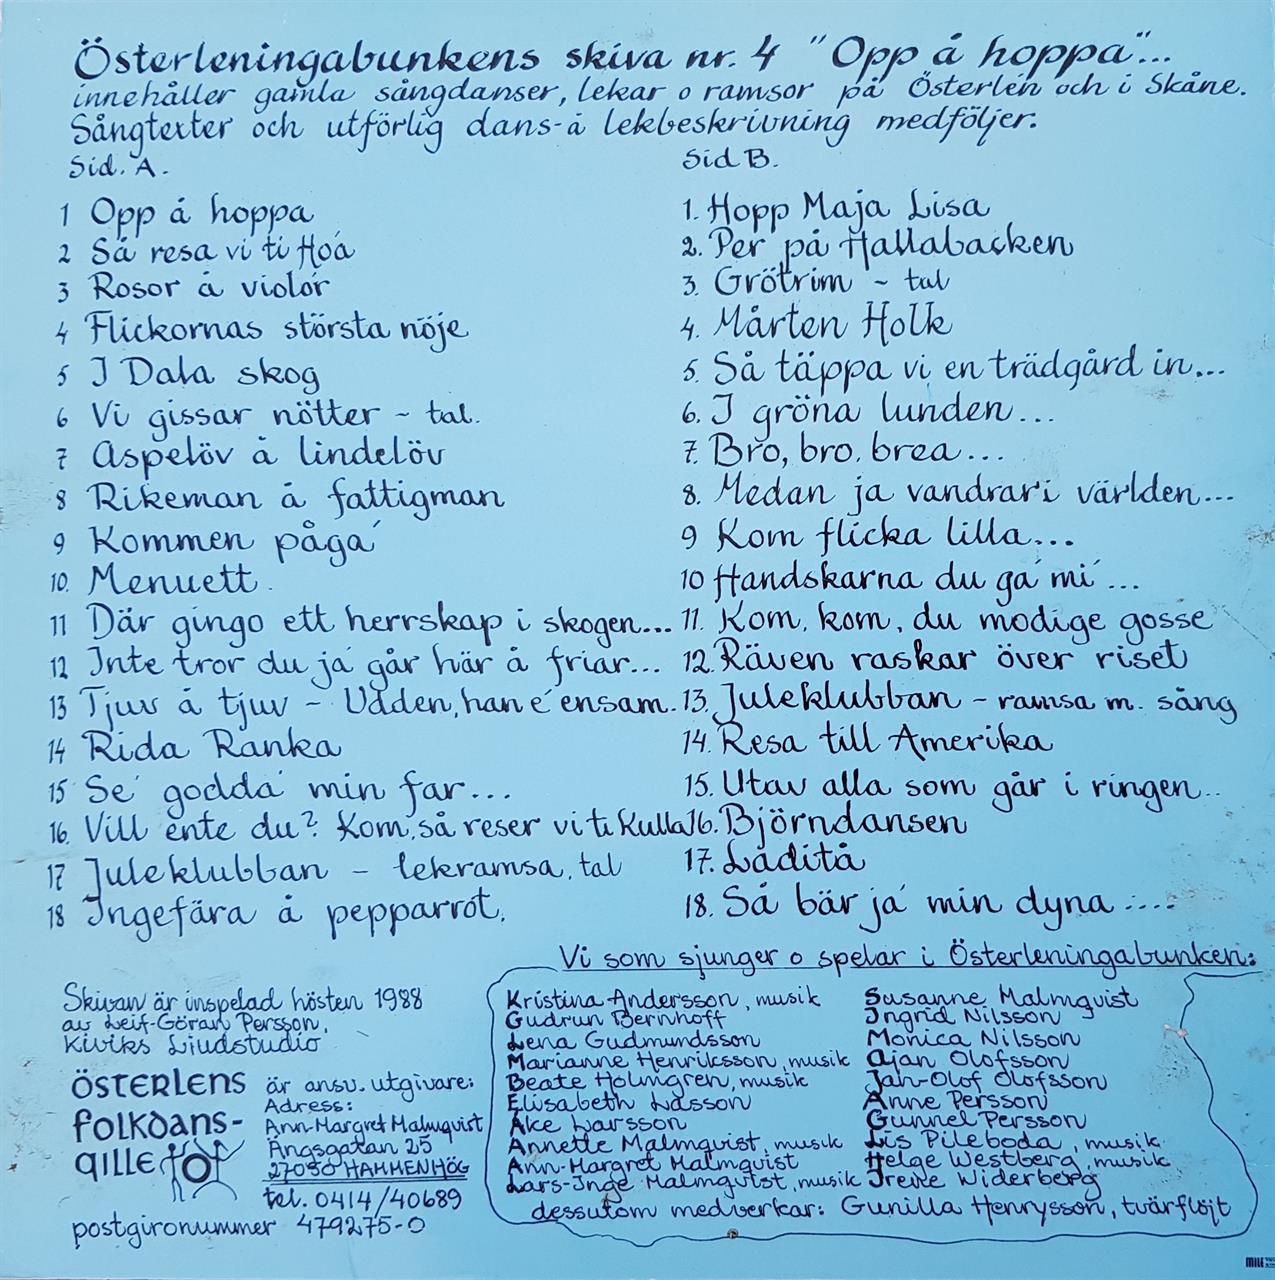 Österleningabunkens skiva nr. 4 "Opp å hoppa"...
innehåller gamla sångdanser, lekar o ramsor på Österlen och i Skåne.
Sångtexter och utförlig dans-å lekbeskrivning medföljer.
Sid. A.
1 Opp å hoppa
2 Så resa vi ti Hoá
3 Rosor å violor
4 Flickornas största nöje
5 I Dala skog
6 Vi gissar nötter - tal.
7 Aspelöv å lindelöv
8 Rikeman å fattigman
9 Kommen pågá
10. Menuett
11 Där gingo ett herrskap i skogen...
12 Inte tror du já går här å friar...
13 Tjuv å tjuv - Udden, han é ensam.
14 Rida Ranka
15 Sé goddá min far...
16. Vill ente du? Kom, så reser vi ti Kulla
17 Juleklubban - lekramsa, tal
18 Ingefära å pepparrot.
Sid B.
1. Hopp Maja Lisa
2. Per på Hallabacken
3. Grötrim - tal
4. Mårten Holk
5. Så täppa vi en trädgård in...
6. I gröna lunden...
7. Bro, bro, brea...
8. Medan ja vandrar i världen...
9 Kom flicka lilla...
10 Handskarna du gá mí...
11. Kom, kom, du modige gosse
12. Räven raskar över riset
13. Juleklubban - ramsa m. sång
14. Resa till Amerika
15. Utav alla som går i ringen..
16. Björndansen
17. Laditå
18. Så bär já min dyna ....
Vi som sjunger o spelar i Österleningabunken:
Kristina Andersson, musik
Gudrun Bernhoff
Lena Gudmundsson
Marianne Henriksson, musik
Beate Holmgren, musik
Elisabeth Lasson
Åke Larsson
Annette Malmqvist, musik
Ann-Margret Malmqvist
Lars-Inge Malmqvist, musik
Susanne Malmqvist
Ingrid Nilsson
Monica Nilsson
Ajan Olofsson
Jan-Olof Olofsson
Anne Persson
Gunnel Persson
Lis Pileboda, musik
Helge Westberg, musik
Irene Widerberg
dessutom medverkar: Gunilla Henrysson, tvärflöjt
Skivan är inspelad hösten 1988
av Leif-Göran Persson,
Kiviks Ljudstudio
ÖSTERLENS
FOLKDANS-
GILLE
är ansv. utgivare:
Adress:
Ann-Margret Malmqvist
Ängsgatan 25
27050 HAMMENHÖG
tel. 0414/40689
postgironummer 479275-0